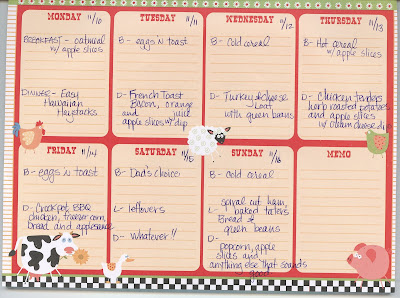 MONDAY 11/10
BREAKFAST - oatmeal
w/ apple slices
DINNER - Easy
Hawaiian
Haystacks
TUESDAY 11/11
B- eggs 'n toast
D- French Toast
Bacon, orange
and juice
apple slices w/ dip
WEDNESDAY 11/12
B- Cold cereal
D- Turkey & cheese
Loaf,
with green beans
THURSDAY 11/13
B- Hot cereal
w/ apple slices
D- Chicken tenders
herb roasted potatoes
and apple slices
w/ cream cheese dip
FRIDAY 11/14
B- eggs 'n toast
D- Crockpot BBQ
chicken, freezer corn,
bread and applesauce
SATURDAY 11/15
B- Dad's choice
L- leftovers
D- Whatever!!
SUNDAY 11/16
B- cold cereal
L- spiral cut ham,
baked taters
Bread &
green beans
D-
popcorn, apple
slices and
anything else that sounds
good
MEMO